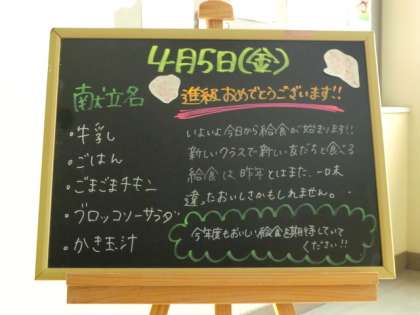 4月5日(金)
献立名
・牛乳
・ごはん
・ごまごまチキン
・ブロッコリーサラダ
・かき玉汁
進級おめでとうございます!!
いよいよ今日から給食が始まります!!
新しいクラスで新しい友だちと食べる
給食は、昨年とはまた、一味
違ったおいしさかもしれません。
今年度もおいしい給食を期待していて
ください!!